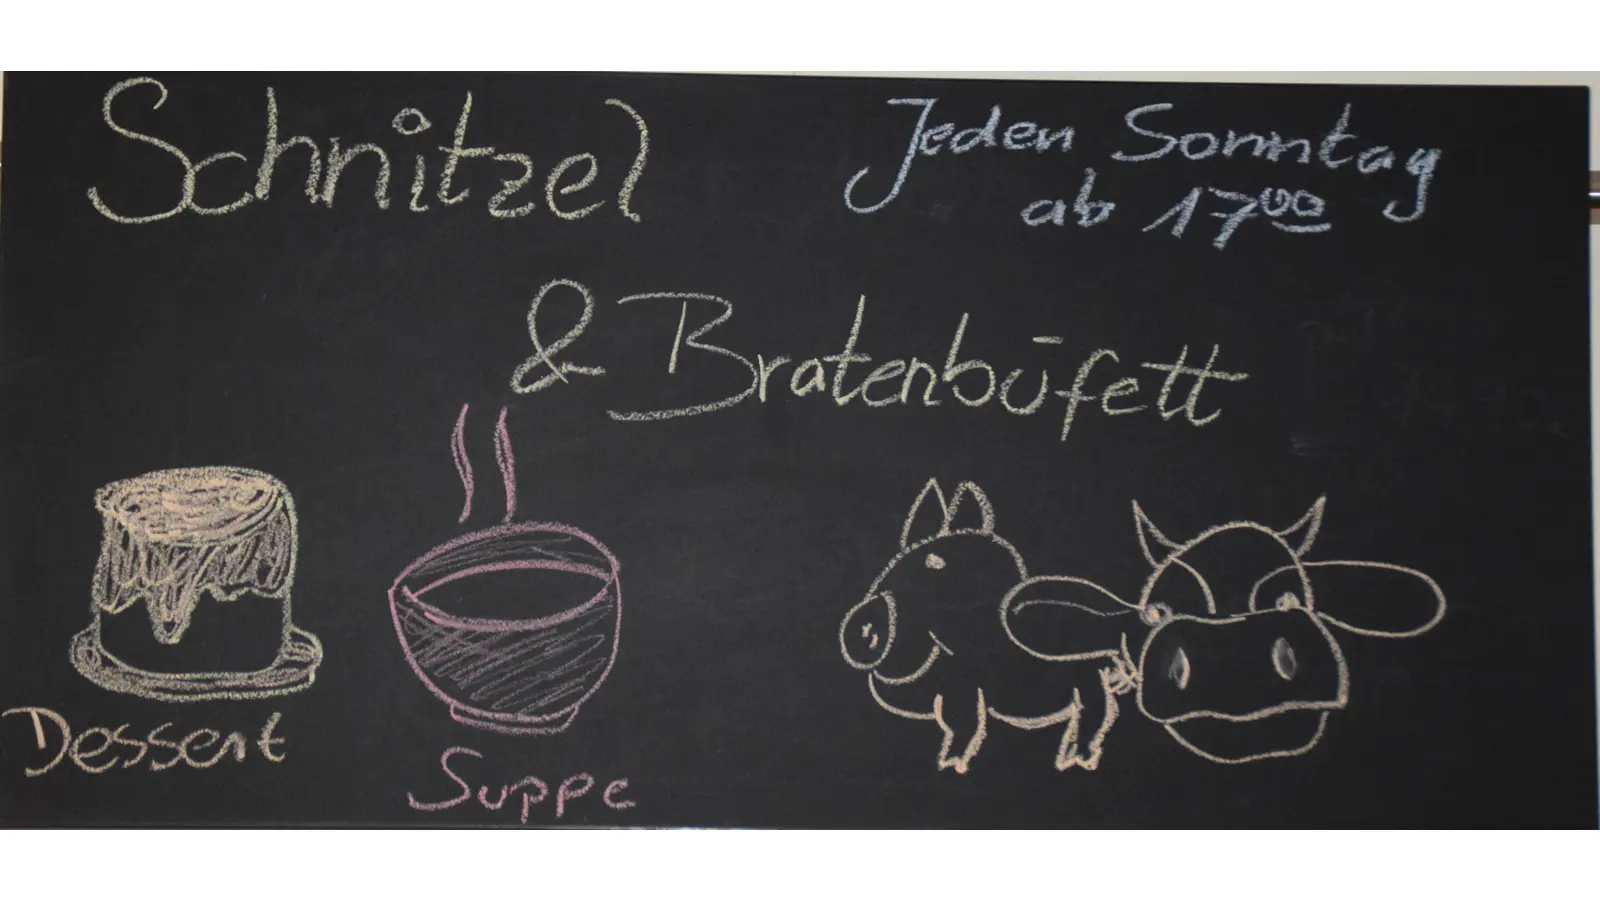 Schnitzel
Jeden Sonntag
ab 17⁰⁰
& Bratenbūfett
Dessert
Suppe